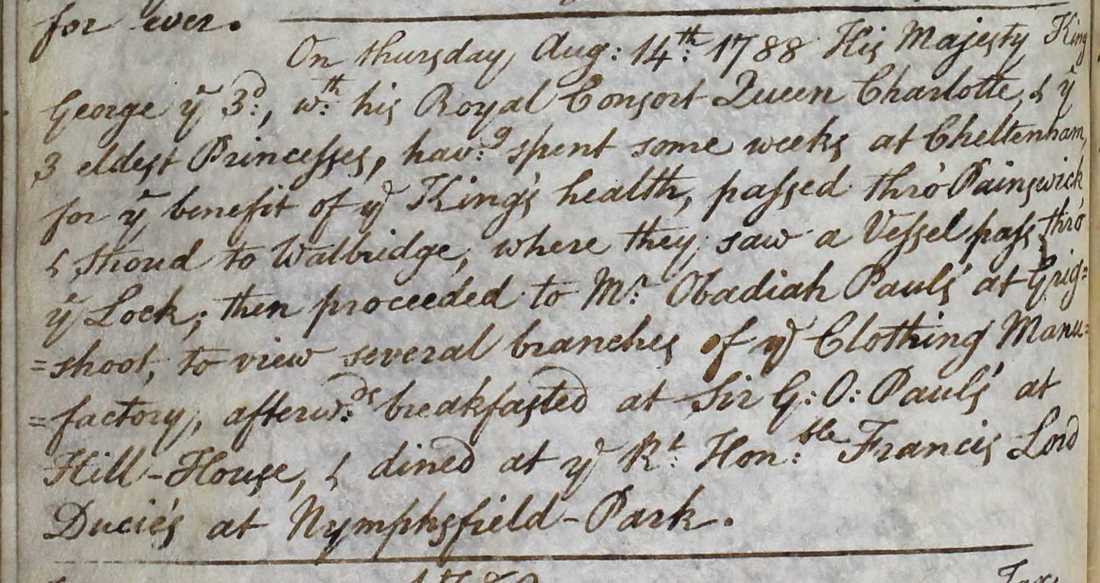 for ever.
On Thursday, Aug: 14th: 1788 His Majesty King
George ye 3d:, wth: his Royal Consort Queen Charlotte, & ye
3 eldest Princesses, hav:g spent some weeks at Cheltenham,
for ye benefit of ye King's health, passed thro' Painswick
& Stroud to Walbridge, where they saw a Vessel pass thro'
ye Lock; then proceeded to Mr. Obadiah Paul's at Grig=
=shoot, to view several branches of ye Clothing Manu=
=factory, afterw:ds breakfasted at Sir G: O: Paul's at
Hill-House, & dined at ye Rt. Hon:ble Francis Lord
Ducie's at Nymphsfield-Park.